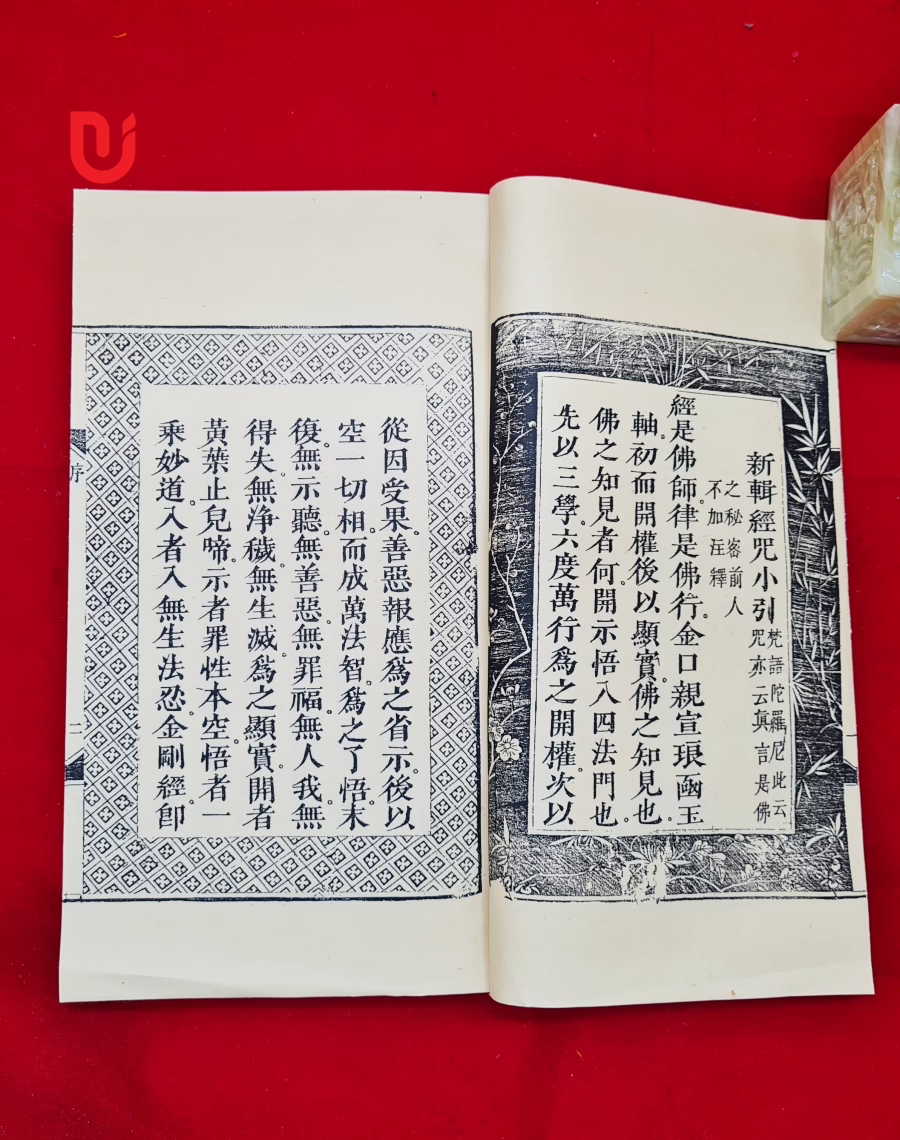 新輯經咒小引
梵語陀羅尼此云
咒亦云眞言是佛
之秘密前人
不加注釋
經是佛師。律是佛行。金口親宣琅凾玉
軸。初而開權後以顯實。佛之知見也。
佛之知見者何。開示悟入四法門也。
先以三學。六度萬行爲之開權。次以
從因受果。善惡報應爲之省示。後以
空一切相。而成萬法智。爲之了悟。末
復。無示聽。無善惡。無罪福。無人我。無
得失。無浄穢。無生滅。爲之顯實。開者
黃葉止兒啼。示者罪性本空。悟者一
乘妙道。入者入無生法忍。金剛經即
序
二